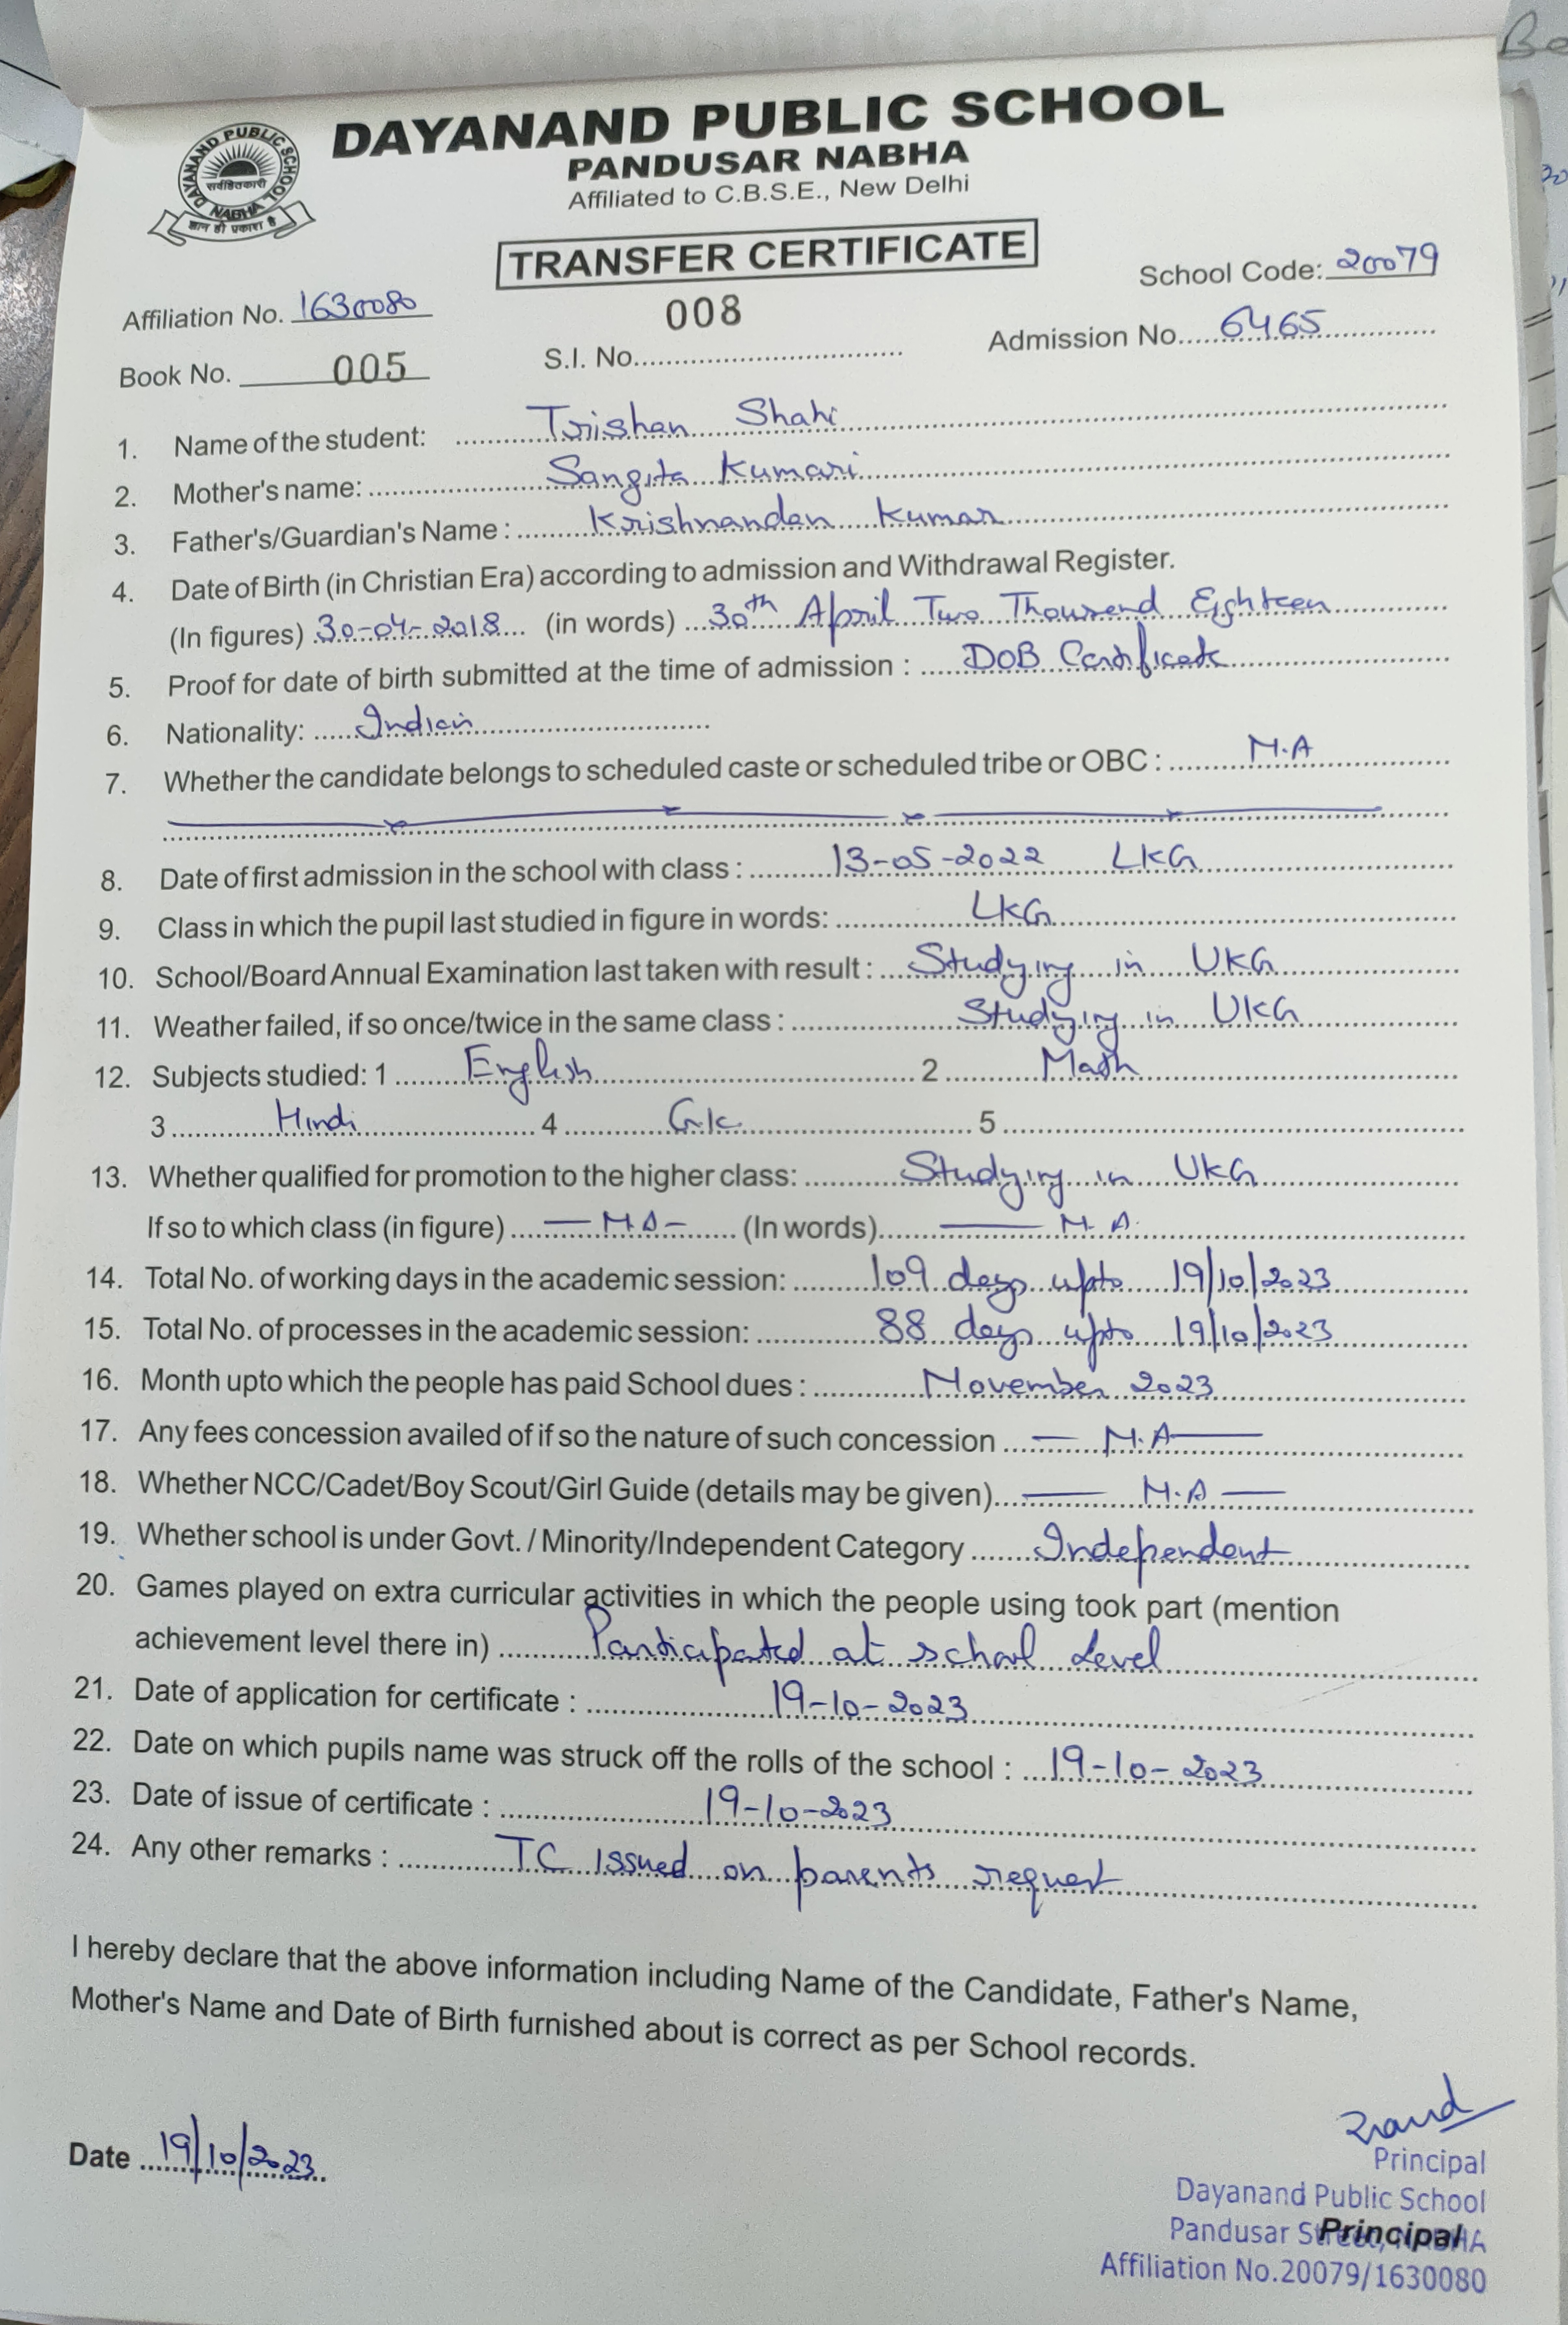 DAYANAND PUBLIC SCHOOL
PANDUSAR NABHA
Affiliated to C.B.S.E., New Delhi
DAYANAND PUBLIC SCHOOL
सर्वहितकारी
NABHA
ज्ञान ही प्रकाश है
TRANSFER CERTIFICATE
School Code: 20079
Affiliation No. 1630080
008
Admission No. 6465
Book No. 005
S.I. No.
1. Name of the student: Trishan Shahi
2. Mother's name: Sangita Kumari
3. Father's/Guardian's Name : Krishnandan Kumar
4. Date of Birth (in Christian Era) according to admission and Withdrawal Register.
(In figures) 30-04-2018 (in words) 30th April Two Thousend Eighteen
5. Proof for date of birth submitted at the time of admission : DOB Certificate
6. Nationality: Indian
7. Whether the candidate belongs to scheduled caste or scheduled tribe or OBC : N.A
8. Date of first admission in the school with class : 13-05-2022 LKG
9. Class in which the pupil last studied in figure in words: LKG
10. School/Board Annual Examination last taken with result : Studying in UKG
11. Weather failed, if so once/twice in the same class : Studying in UKG
12. Subjects studied: 1 English 2 Math
3 Hindi 4 G.K. 5
13. Whether qualified for promotion to the higher class: Studying in UKG
If so to which class (in figure) — N.A — (In words) — N.A.
14. Total No. of working days in the academic session: 109 days upto 19/10/2023
15. Total No. of processes in the academic session: 88 days upto 19/10/2023
16. Month upto which the people has paid School dues : November 2023
17. Any fees concession availed of if so the nature of such concession — N.A —
18. Whether NCC/Cadet/Boy Scout/Girl Guide (details may be given) — N.A —
19. Whether school is under Govt. / Minority/Independent Category Independent
20. Games played on extra curricular activities in which the people using took part (mention
achievement level there in) Participated at school Level
21. Date of application for certificate : 19-10-2023
22. Date on which pupils name was struck off the rolls of the school : 19-10-2023
23. Date of issue of certificate : 19-10-2023
24. Any other remarks : TC Issued on parents request
I hereby declare that the above information including Name of the Candidate, Father's Name,
Mother's Name and Date of Birth furnished about is correct as per School records.
Date 19/10/2023
Principal
Dayanand Public School
Pandusar Street, NABHA
Principal
Affiliation No.20079/1630080